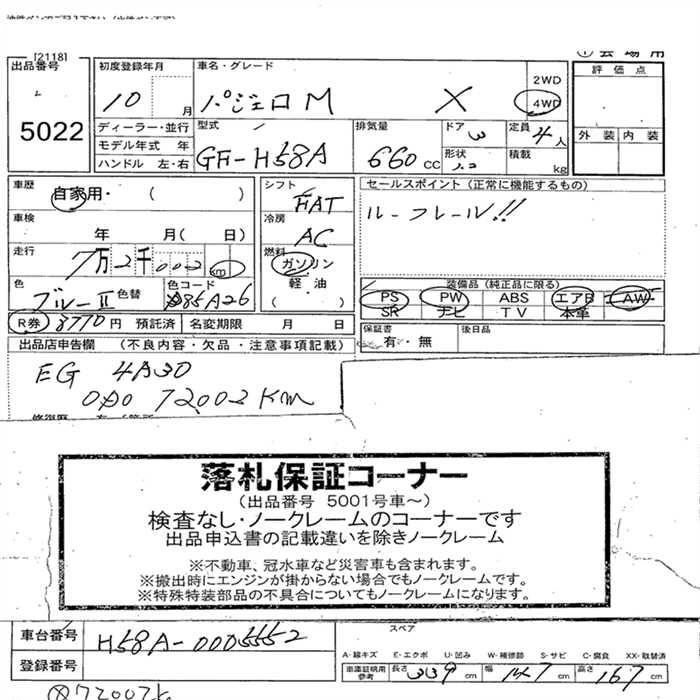 [2118]
① 会場用
出品番号
5022
初度登録年月
10 月
車名・グレード
パジェロM X
2WD
4WD
評価点
外装 内装
ディーラー・並行
モデル年式 年
ハンドル 左・右
型式
GF-H58A
排気量
660 CC
ドア 3
形状
定員 4 人
積載 kg
車歴
自家用・( )
車検
年 月( 日)
走行
7万2千002 km
色
ブルーⅡ 色替
色コード
シフト
FAT
冷房
AC
燃料
ガソリン
軽・油
( )
セールスポイント (正常に機能するもの)
ルーフレール!!
装備品 (純正品に限る)
PS PW ABS エアB AW
SR ナビ TV 本革
R券 8770円 預託済 名変期限 月 日
保証書
有・無
後日品
出品店申告欄 (不良内容・欠品・注意事項記載)
EG 4A30
72002 KM
落札保証コーナー
(出品番号 5001号車～)
検査なし・ノークレームのコーナーです
出品申込書の記載違いを除きノークレーム
※不動車、冠水車など災害車も含まれます。
※搬出時にエンジンが掛からない場合でもノークレームです。
※特殊特装部品の不具合についてもノークレームになります。
車台番号
H58A-0005552
登録番号
スペア
A-線キズ E-エクボ U-凹み W-補修跡 S-サビ C-腐食 XX-取替済
車庫証明用参考 長さ 339 cm 幅 147 cm 高さ 167 cm